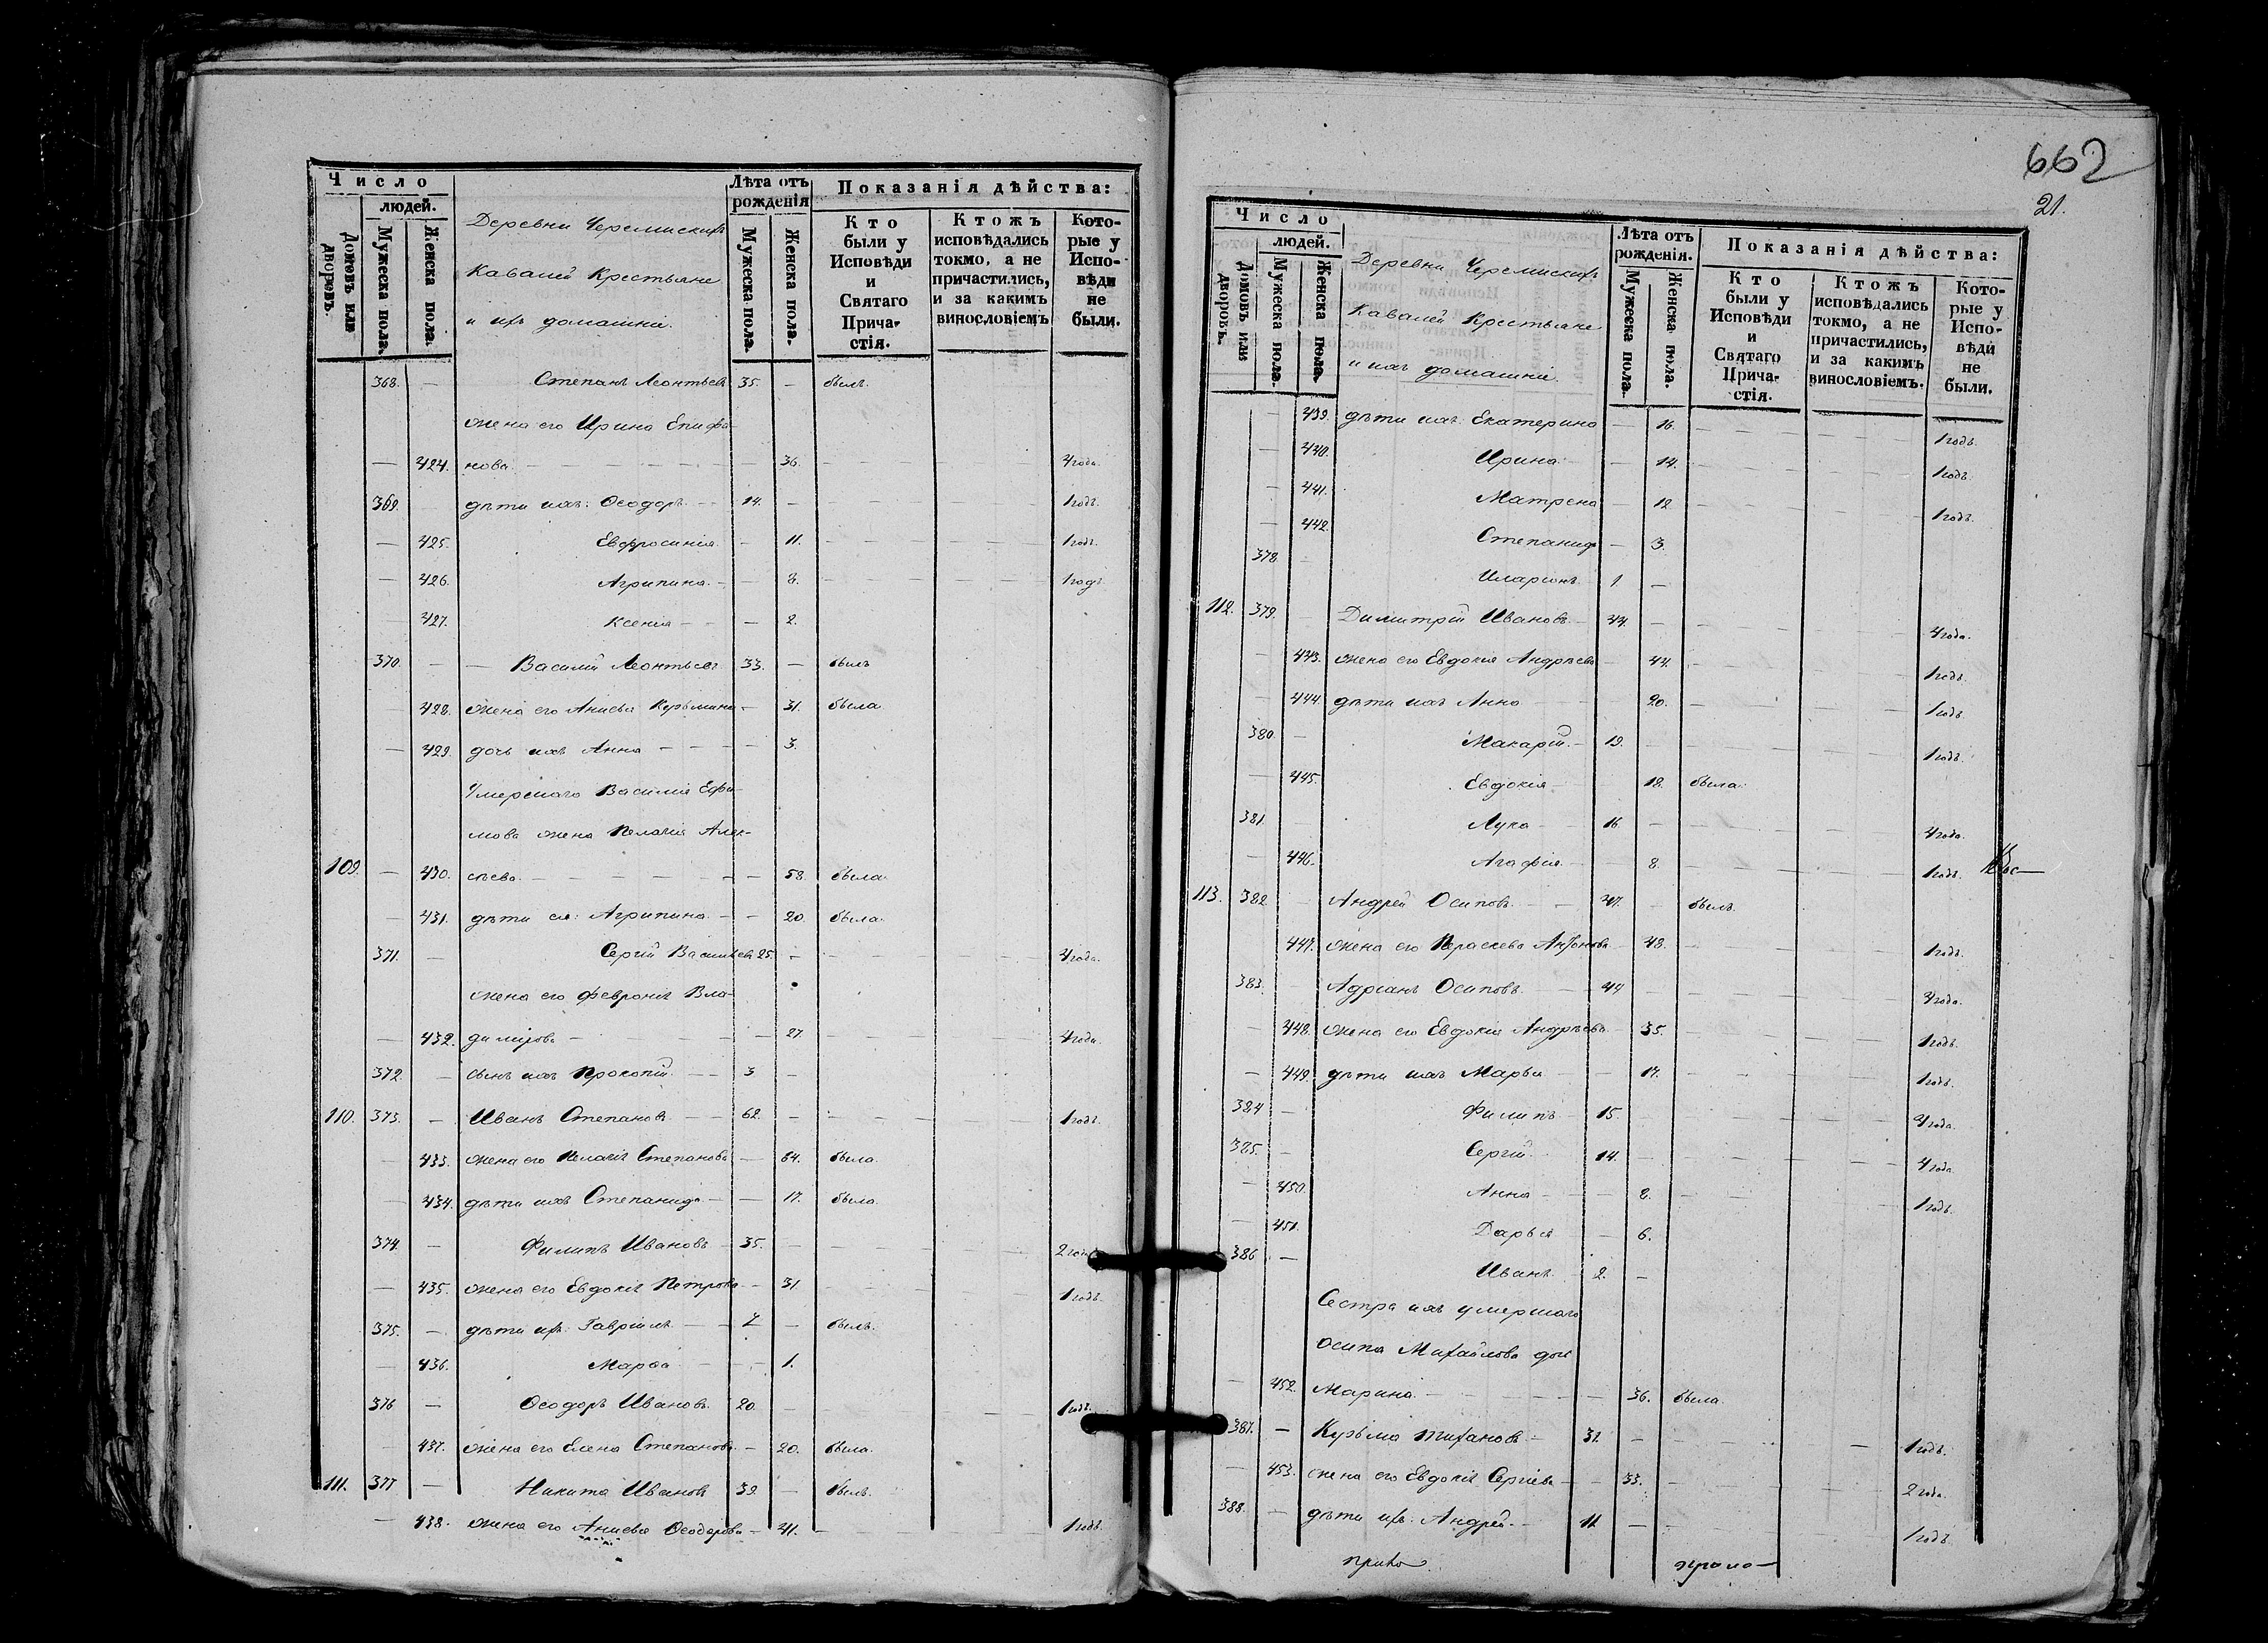 Число
людей.
Домовъ или дворовъ.
Мужеска пола.
Женска пола.
Деревни Черемискихъ
Кавалей Крестьяне
и ихъ домашніе.
Лѣта отъ рожденія
Мужеска пола.
Женска пола.
Показанія дѣйства:
Кто были у Исповѣди и Святаго Причастія.
Ктожъ исповѣдались токмо, а не причастились, и за какимъ винословіемъ
Которые у Исповѣди не были.
368. — Степанъ Леонтьевъ 35. — былъ.
жена его Ирина Епифа-
— 424. нова — 36. — 4 года.
369. дѣти ихъ: Ѳеодоръ 14. — 1 годъ.
— 425. Евфросинія — 11. — 1 годъ.
— 426. Агрипина — 8. — 1 годъ
427. Ксенія — 2.
370. — Василій Леонтьевъ 33. — былъ
— 428. жена его Анисья Кузьмина — 31. была
— 429. дочь ихъ Анна — 3.
Умершаго Василія Ефи-
мова жена Пелагія Алек-
109. — 430. сѣева — 58. была
— 431. дѣти ея: Агрипина — 20. была
371. — Сергій Васильевъ 25. — 4 года.
жена его Февронія Вла-
— 432. димірова — 27. — 4 года
372. — сынъ ихъ Прокопій — 3 —
110. 373. — Иванъ Степановъ — 62. — 1 годъ.
— 433. жена его Пелагія Степанова — 64. была.
— 434. дѣти ихъ Степанида — 17. была.
374. — Филипъ Ивановъ — 35. — 2 года
— 435. жена его Евдокія Петрова — 31. — 1 годъ.
375. — дѣти ихъ: Гавріилъ — 7 — былъ.
— 436. Марѳа — 1.
376 — Ѳеодоръ Ивановъ 20. — 1 годъ.
437. жена его Елена Степанова — 20. была.
111. 377 — Никита Ивановъ 39. — былъ.
— 438. жена его Анисья Ѳеодорова — 41. — 1 годъ.
662
21.
Число
людей.
Домовъ или дворовъ.
Мужеска пола.
Женска пола.
Деревни Черемискихъ
Кавалей Крестьяне
и ихъ домашніе.
Лѣта отъ рожденія.
Мужеска пола.
Женска пола.
Показанія дѣйства:
Кто были у Исповѣди и Святаго Причастія.
Ктожъ исповѣдались токмо, а не причастились, и за какимъ винословіемъ.
Которые у Исповѣди не были.
— 439. дѣти ихъ: Екатерина — 16. — 1 годъ.
— 440. Ирина — 14. — 1 годъ.
— 441. Матрена — 12 — 1 годъ.
— 442. Степанида — 3.
378. — Иларіонъ 1. —
112. 379. — Димитрій Ивановъ 44. — 4 года.
— 443. жена его Евдокія Андрѣева — 44. — 1 годъ.
— 444. дѣти ихъ Анна 20. — 1 годъ.
380. — Макарій — 19. — 1 годъ.
— 445. Евдокія 18. была.
381. — Лука — 16. — 4 года.
— 446. Агафія — 8. — 1 годъ.
113. 382. — Андрей Осиповъ — 47. — былъ.
447. жена его Параскева Антонова — 48. — 1 годъ.
383. Адріанъ Осиповъ — 44 — 4 года.
— 448. жена его Евдокія Андрѣева 35. — 1 годъ.
— 449. дѣти ихъ Марья — 17. — 1 годъ.
384 — Филипъ 15. — 4 года.
385. — Сергій 14. — 4 года
— 450. Анна — 8. — 1 годъ.
— 451. Дарья — 6.
386 — Иванъ — 2. —
Сестра ихъ умершаго
Осипа Михайлова дочь
— 452. Марина — 36. была.
387. — Кузьма 31. — 1 годъ.
— 453. жена его Евдокія Сергіева — 33. — 2 года.
388. — дѣти ихъ: Андрей — 11 — 1 годъ